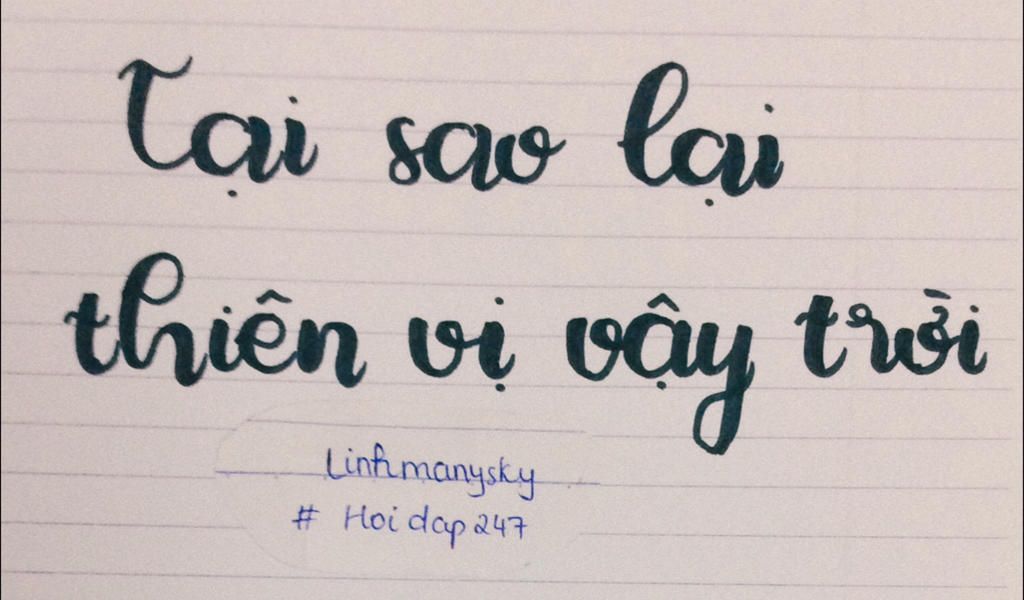 Tại sao lại
thiên vị vậy trời
Linhmanysky
# Hoidap247